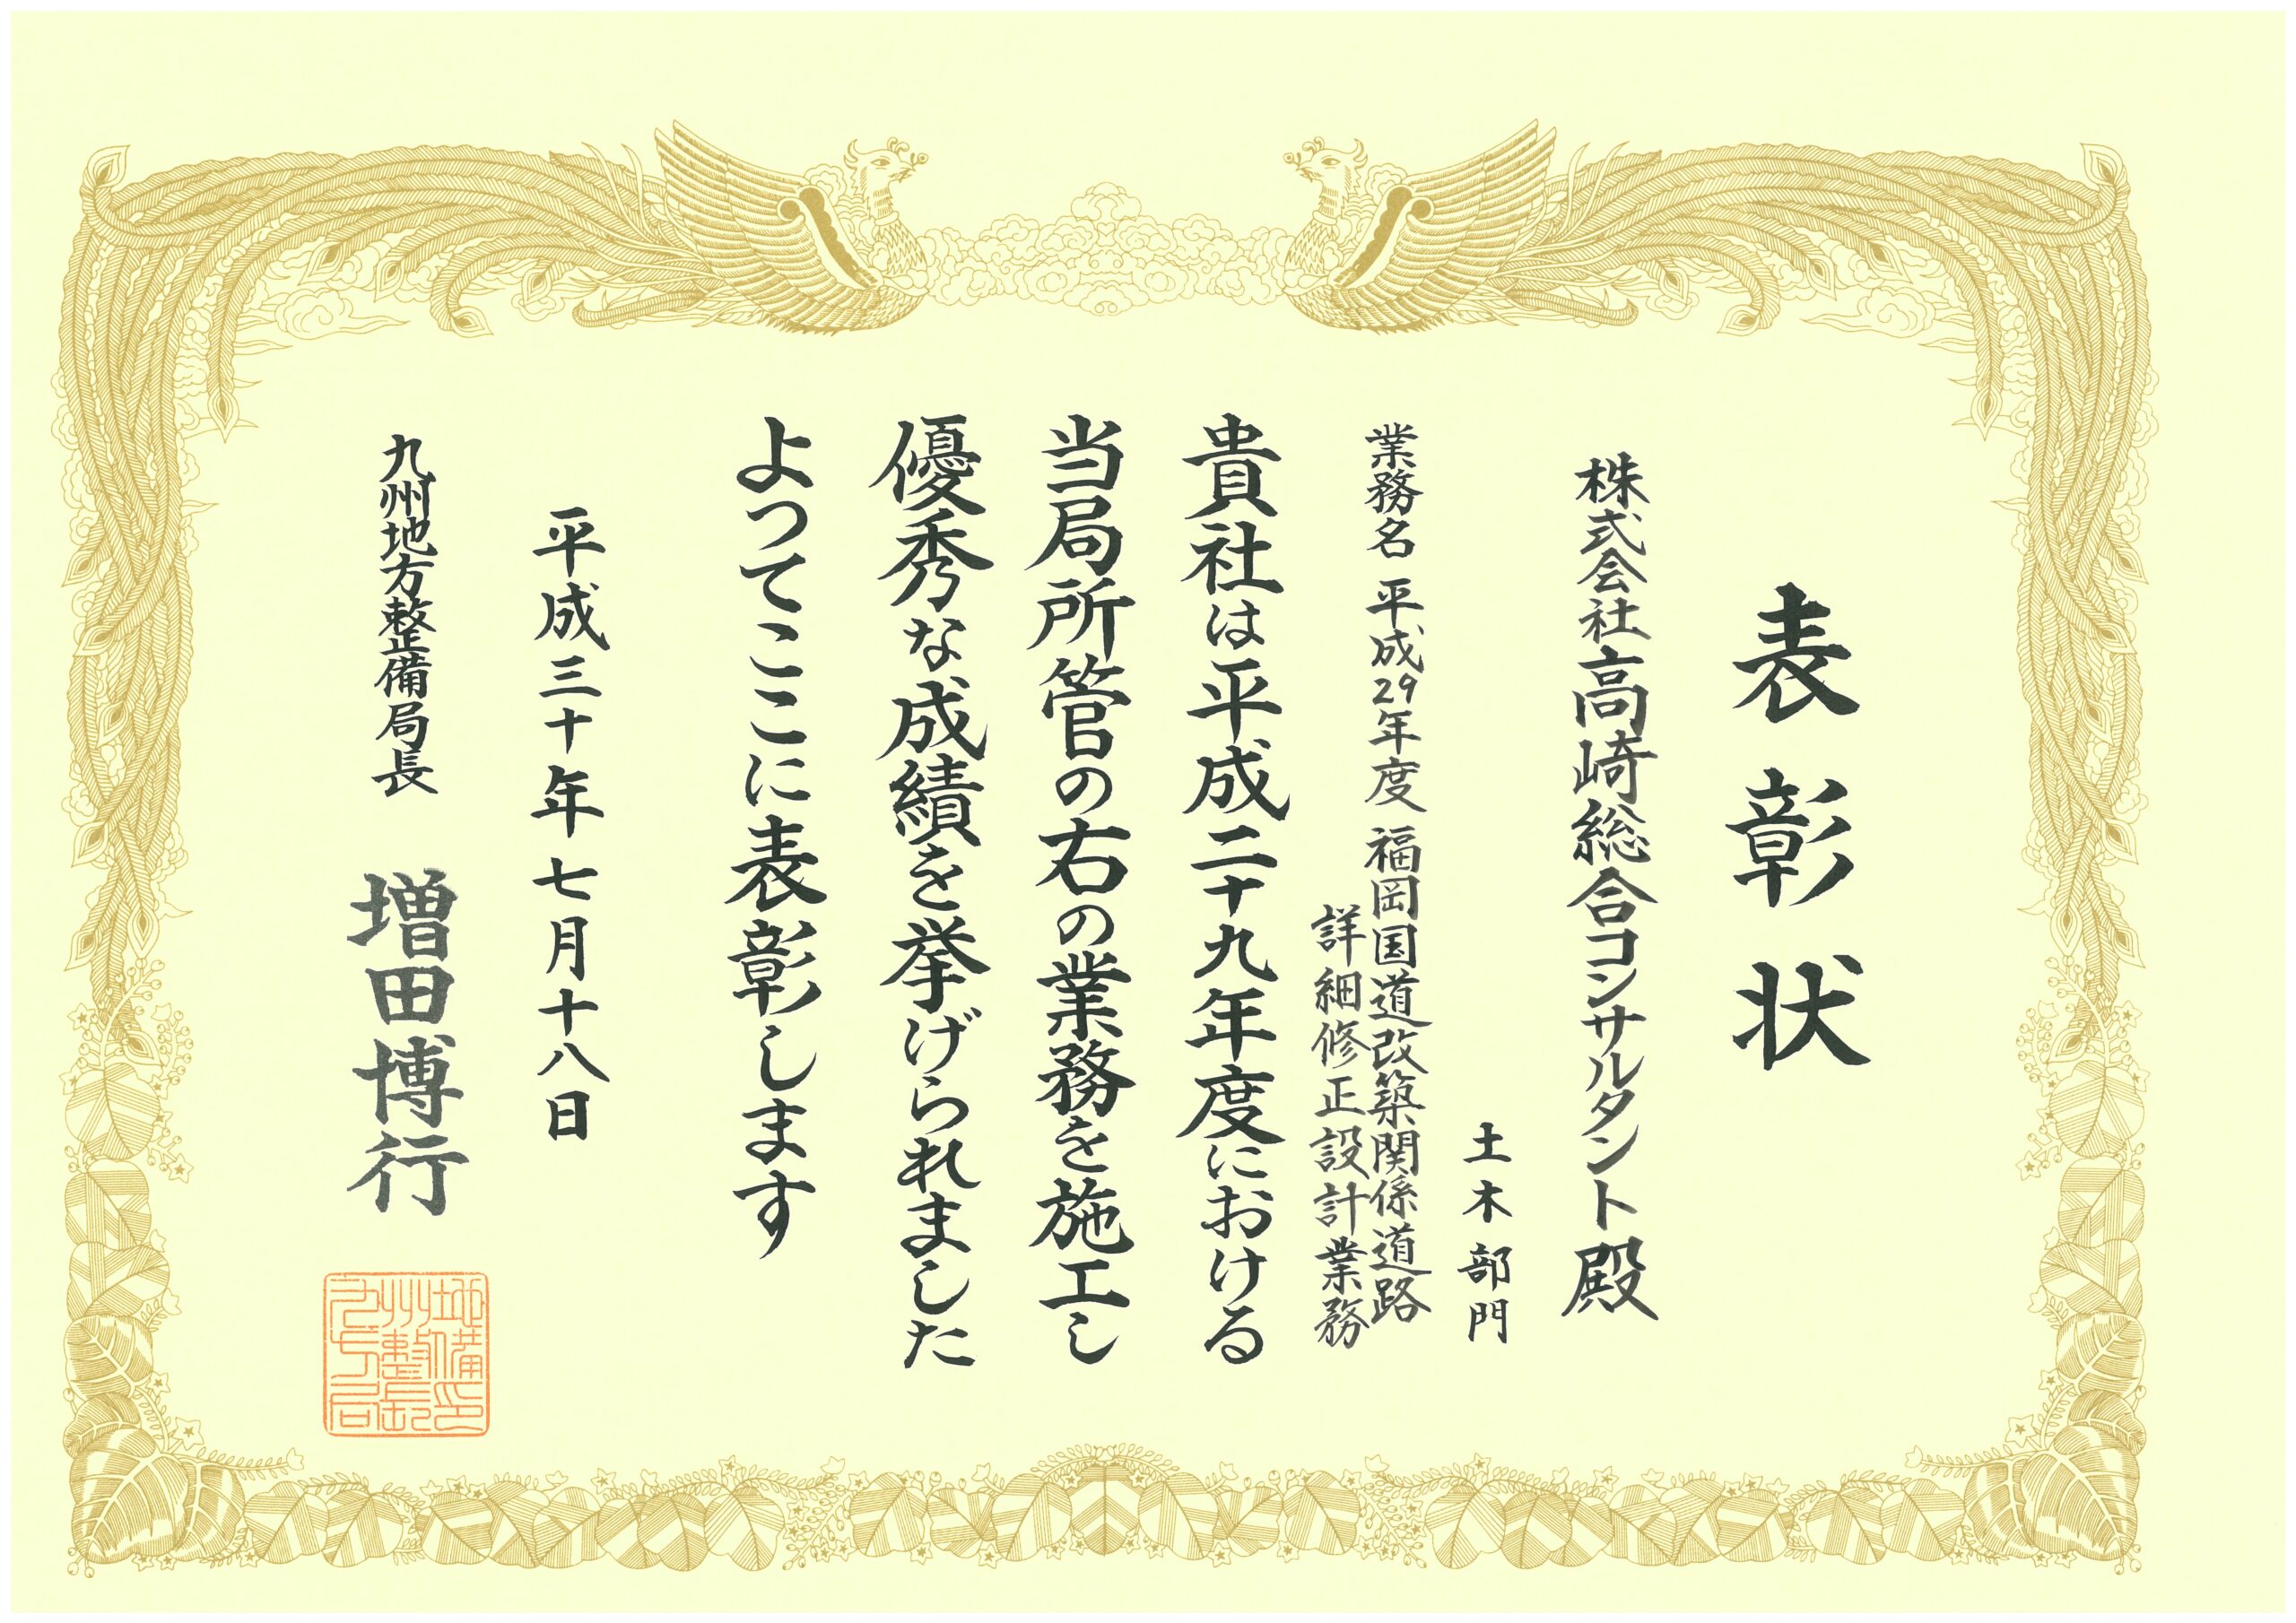 表彰状
株式会社高崎総合コンサルタント殿
土木部門
業務名 平成29年度 福岡国道改築関係道路
詳細修正設計業務
貴社は平成二十九年度における
当局所管の右の業務を施工し
優秀な成績を挙げられました
よってここに表彰します
平成三十年七月十八日
九州地方整備局長 増田博行
九州地方整備局長印